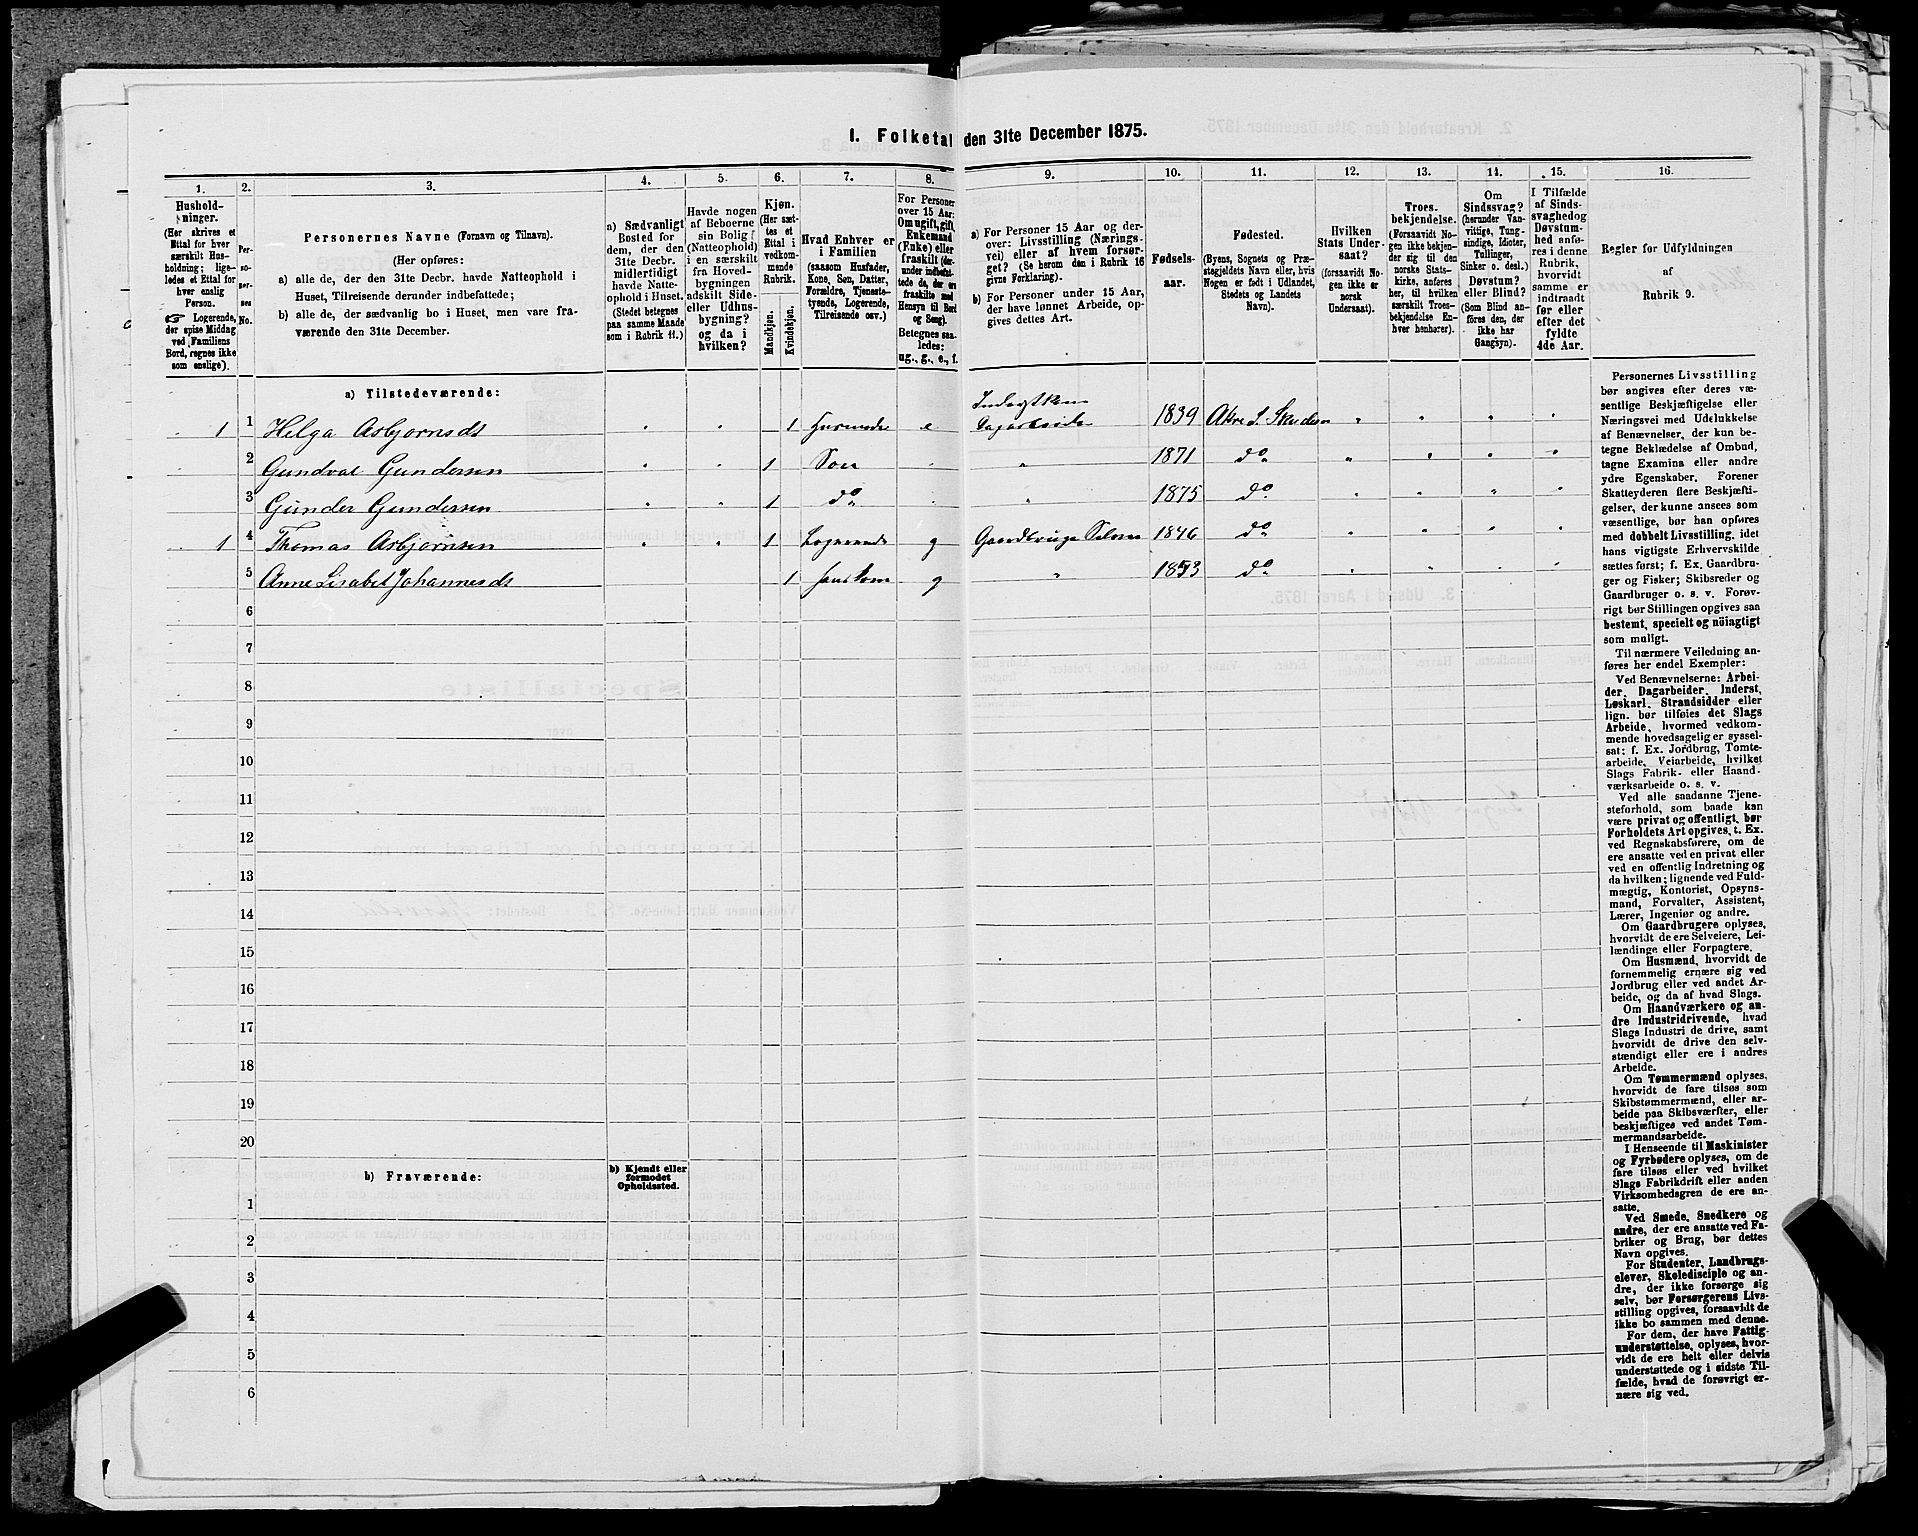 1. Folketal den 31te December 1875.
1. 2. 3. 4. 5. 6. 7. 8. 9. 10. 11. 12. 13. 14. 15. 16.
Hushold-
ninger.
(Her skrives et
Ettal for hver
særskilt Hus-
holdning; lige-
ledes et Ettal for
hver enslig
Person.
☞ Logerende,
der spise Middag
ved Familiens
Bord, regnes ikke
som enslige).
Per-
so-
ner-
nes
No.
Personernes Navne (Fornavn og Tilnavn).
(Her opføres:
a) alle de, der den 31te Decbr. havde Natteophold i
Huset, Tilreisende derunder indbefattede;
b) alle de, der sædvanlig bo i Huset, men vare fra-
værende den 31te December.
a) Sædvanligt
Bosted for
dem, der den
31te Decbr.
midlertidigt
havde Natte-
ophold i Huset.
(Stedet betegnes
paa samme Maade
som i Rubrik 11.)
Havde nogen
af Beboerne
sin Bolig
(Natteophold)
i en særskilt
fra Hoved-
bygningen
adskilt Side-
eller Udhus-
bygning?
og da i
hvilken?
Kjøn.
(Her sæt-
tes et
Ettal i
vedkom-
mende
Rubrik.
Mandkjøn.
Kvindekjøn.
Hvad Enhver er
i Familien
(saasom Husfader,
Kone, Søn, Datter,
Forældre, Tjeneste-
tyende, Logerende,
Tilreisende osv.)
For Personer
over 15 Aar:
Om ugift, gift,
Enkemand
(Enke) eller
fraskilt (der-
under indbefat-
tede de, der ere
fraskilte med
Hensyn til Bord
og Seng).
Betegnes saa-
ledes:
ug., g., e., f.
a) For Personer 15 Aar og der-
over: Livsstilling (Nærings-
vei) eller af hvem forsør-
get? (Se herom den i Rubrik 16
givne Forklaring).
b) For Personer under 15 Aar,
der have lønnet Arbeide, op-
gives dettes Art.
Fødsels-
aar.
Fødested.
(Byens, Sognets og Præ-
stegjeldets Navn eller, hvis
Nogen er født i Udlandet,
Stedets og Landets
Navn).
Hvilken
Stats Under-
saat?
(forsaavidt No-
gen ikke er
norsk
Undersaat).
Troes.
bekjendelse.
(Forsaavidt No-
gen ikke bekjen-
der sig til den
norske Stats-
kirke, anføres
her, til hvilken
særskilt Troes-
bekjendelse En-
hver henhører).
Om
Sindssvag?
(herunder Van-
vittige, Tung-
sindige, Idioter,
Tullinger,
Sinker o. desl.)
Døvstum?
eller Blind?
(Som Blind an-
føres den, der
ikke har
Gangsyn).
I Tilfælde
af Sinds-
svaghed og
Døvstum-
hed anfø-
res i denne
Rubrik,
hvorvidt
samme er
indtraadt
før eller
efter det
fyldte
4de Aar.
Regler for Udfyldningen
af
Rubrik 9.
a) Tilstedeværende:
1 1 Helga Asbjornsdt 1 Husmode e 1839
2 Gundval Gundersen 1 Søn 1871 do
3 Gunder Gundersen 1 do 1875 do
1 4 Thomas Asbjornsen 1 Logerende g Gaardbruger Selveier 1846 do
5 Anne Lisabet Johannesdt 1 hans kone g 1853 do
6
7
8
9
10
11
12
13
14
15
16
17
18
19
20
b) Fraværende:
b) Kjendt eller
formodet
Opholdssted.
1
2
3
4
5
6
Personernes Livsstilling
bør angives efter deres væ-
sentlige Beskjæftigelse eller
Næringsvei med Udelukkelse
af Benævnelser, der kun be-
tegne Beklædelse af Ombud,
tagne Examina eller andre
ydre Egenskaber. Forener
Skatteyderen flere Beskjæfti-
gelser, der kunne ansees som
væsentlige, bør han opføres
med dobbelt Livsstilling, idet
hans vigtigste Erhvervskilde
sættes først; f. Ex. Gaardbru-
ger og Fisker; Skibsreder og
Gaardbruger o. s. v. Forøv-
rigt bør Stillingen opgives saa
bestemt, specielt og nøiagtigt
som muligt.
Til nærmere Veiledning an-
føres her endel Exempler:
Ved Benævnelserne: Arbei-
der, Dagarbeider, Inderst,
Løskarl, Strandsidder eller
lign. bør tilføies det Slags
Arbeide, hvormed vedkom-
mende hovedsagelig er syssel-
sat; f. Ex. Jordbrug, Tomte-
arbeide, Veiarbeide, hvilket
Slags Fabrik- eller Haand-
værksarbeide o. s. v.
Ved alle saadanne Tjene-
steforhold, som baade kan
være privat og offentligt, bør
Forholdets Art opgives, t. Ex.
ved Regnskabsførere, om de
ere ansatte ved en privat eller
ved en offentlig Indretning og
da hvilken; lignende ved Fuld-
mægtig, Kontorist, Opsyns-
mand, Forvalter, Assistent,
Lærer, Ingeniør og andre.
Om Gaardbrugere oplyses,
hvorvidt de ere Selveiere, Lei-
lændinge eller Forpagtere.
Om Husmænd, hvorvidt de
fornemmelig ernære sig ved
Jordbrug eller ved andet Ar-
beide, og da af hvad Slags.
Om Haandværkere og an-
dre Industridrivende, hvad
Slags Industri de drive, samt
hvorvidt de drive den selv-
stændigt eller ere i andres
Arbeide.
Om Tømmermænd oplyses,
hvorvidt de fare tilsøs som
Skibstømmermænd, eller ar-
beide paa Skibsværfter, eller
beskjæftiges ved andet Tøm-
mermandsarbeide.
I Henseende til Maskinister
og Fyrbødere oplyses, om de
fare tilsøs eller ved hvilket
Slags Fabrikdrift eller anden
Virksomhedsgren de ere an-
satte.
Ved Smede, Snedkere og
andre, der ere ansatte ved Fa-
briker og Brug, bør dettes
Navn opgives.
For Studenter, Landbrugs-
elever, Skoledisciple og an-
dre, der ikke forsørge sig
selv, bør Forsørgerens Livs-
stilling opgives, forsaavidt de
ikke bo sammen med denne.
For dem, der have Fattig-
understøttelse, oplyses, hvor-
vidt de ere helt eller delvis
understøttede og i sidste Til-
fælde, hvad de forøvrigt er-
nære sig ved.